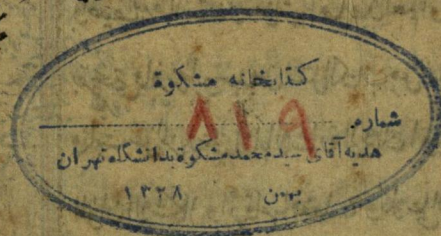 كتابخانه مشکوة
شماره ۸۱۹
هدیه آقای سید محمد مشکوة بدانشگاه تهران
بهمن ۱۳۲۸